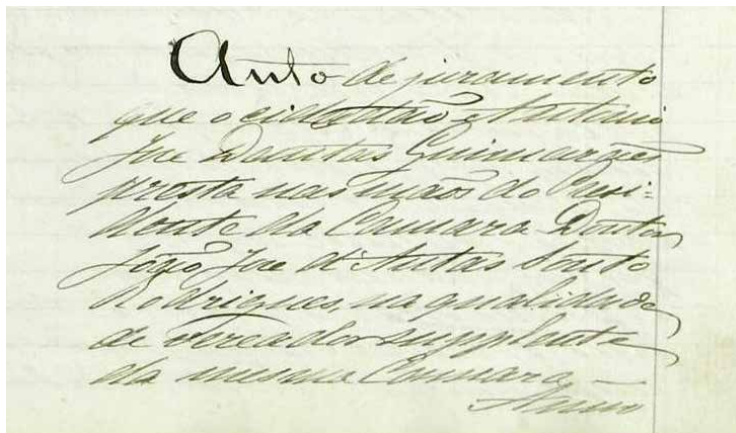 Auto de juramento
que o cidadão Antonio
Jose Dantas Guimarães
presta nas mãos do Presi=
dente da Camara Doutor
João Jose d'Antas Souto
Rodrigues, na qualidade
de vereador supplente
da mesma Camara –
Anno